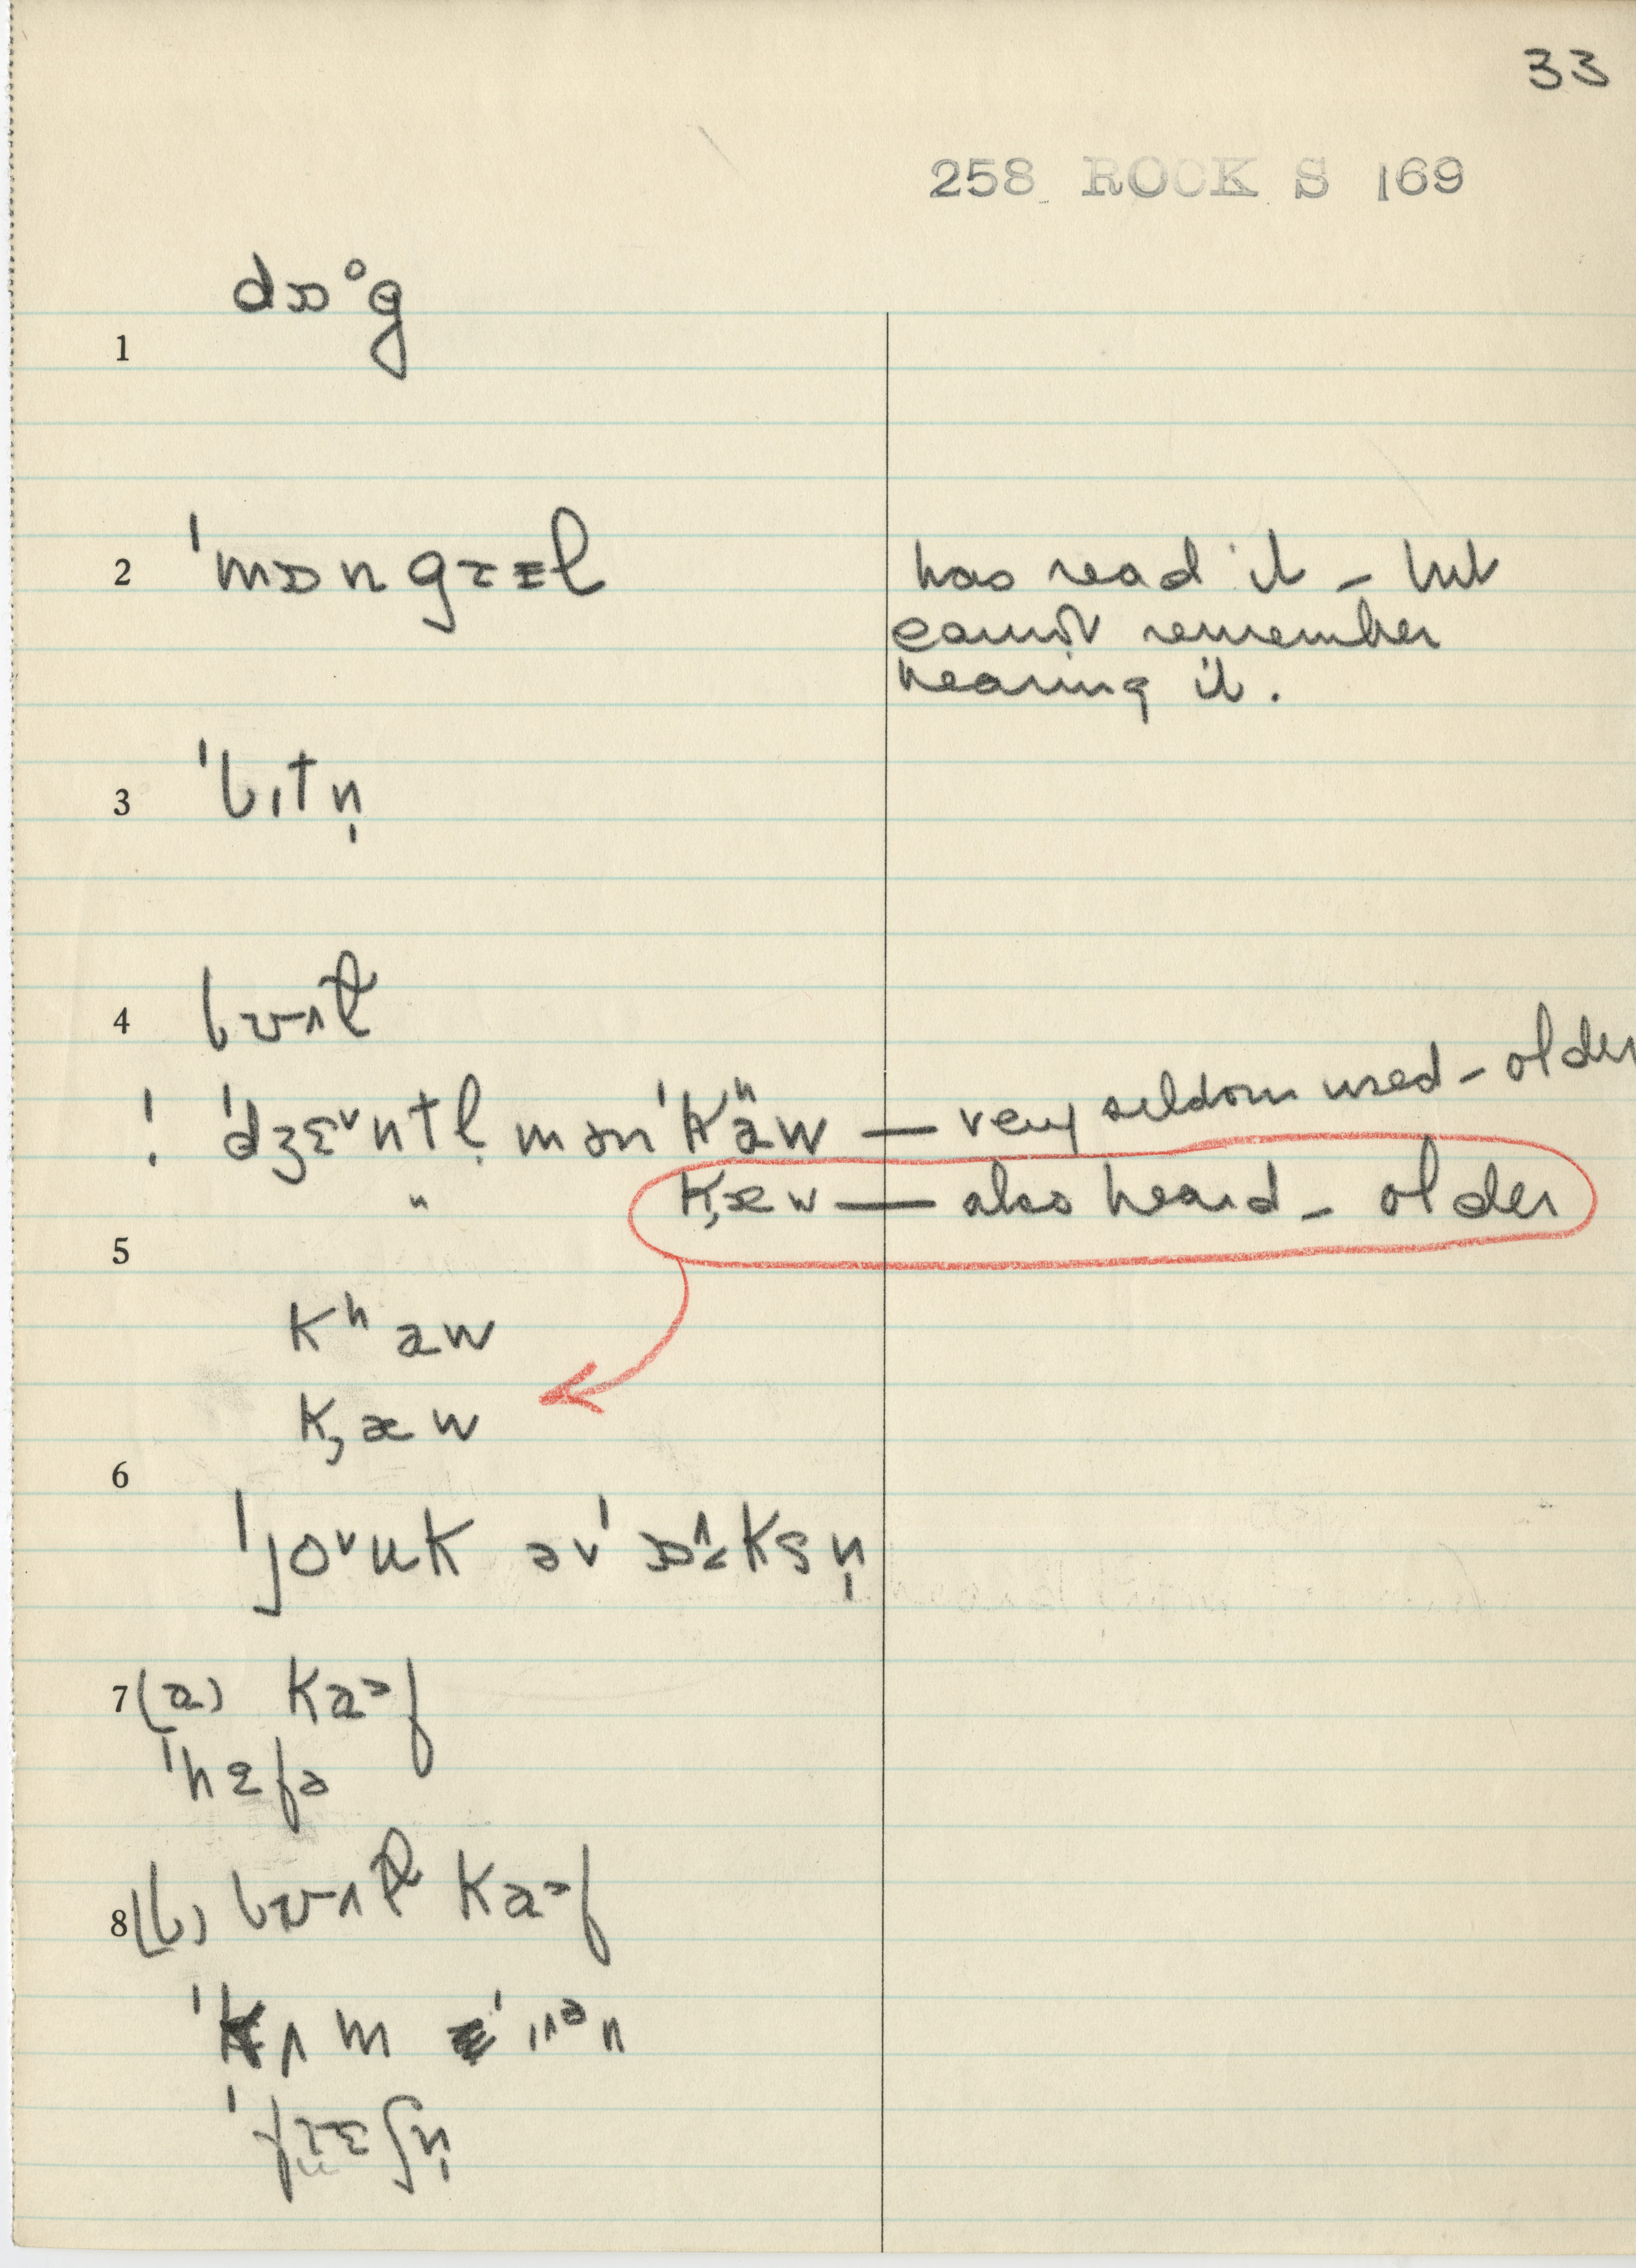 33
258 ROCK S 169
1 dɒᵒg
2 ˈmɔn gɹɛl has read it – but
cannot remember
hearing it.
3 ˈbɪtn̩
4 bʊʌl
! ˈdʒɛᵛntl̩ mənˈkʰaw — very seldom used – older
" k,æw — also heard – older
5
kʰaw
k,æw
6
ˈjoᵛuk əvˈɒʌksn̩
7 (a) kaəf
ˈhɛfə
8 (b) bʊʌl kaəf
ˈfɹɛʃn̩